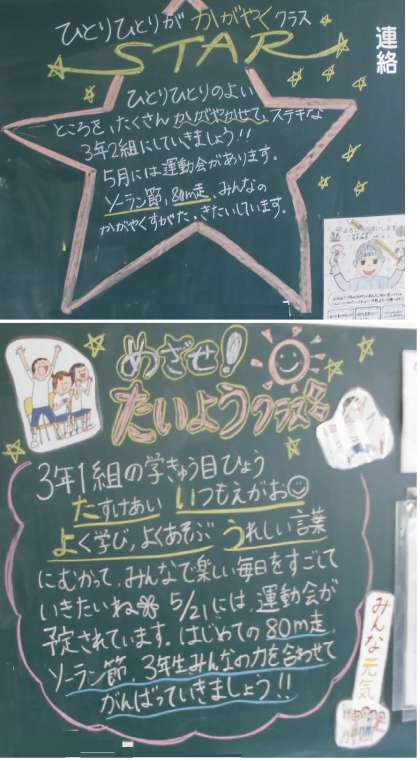 ひとりひとりが かがやく クラス
STAR
連絡
ひとりひとりのよい
ところを、たくさん かがやかせて、ステキな
3年2組にしていきましょう!!
5月には運動会があります。
ソーラン節、80m走、みんなの
かがやくすがた、きたいしています。
めざせ!
たいようクラス
3年1組の学きゅう目ひょう
たすけあい いつもえがお
よく学び、よくあそぶ うれしい言葉
にむかって、みんなで楽しい毎日をすごして
いきたいね 5/21には、運動会が
予定されています。はじめての80m走、
ソーラン節、3年生みんなの力を合わせて
がんばっていきましょう!!
みんな元気